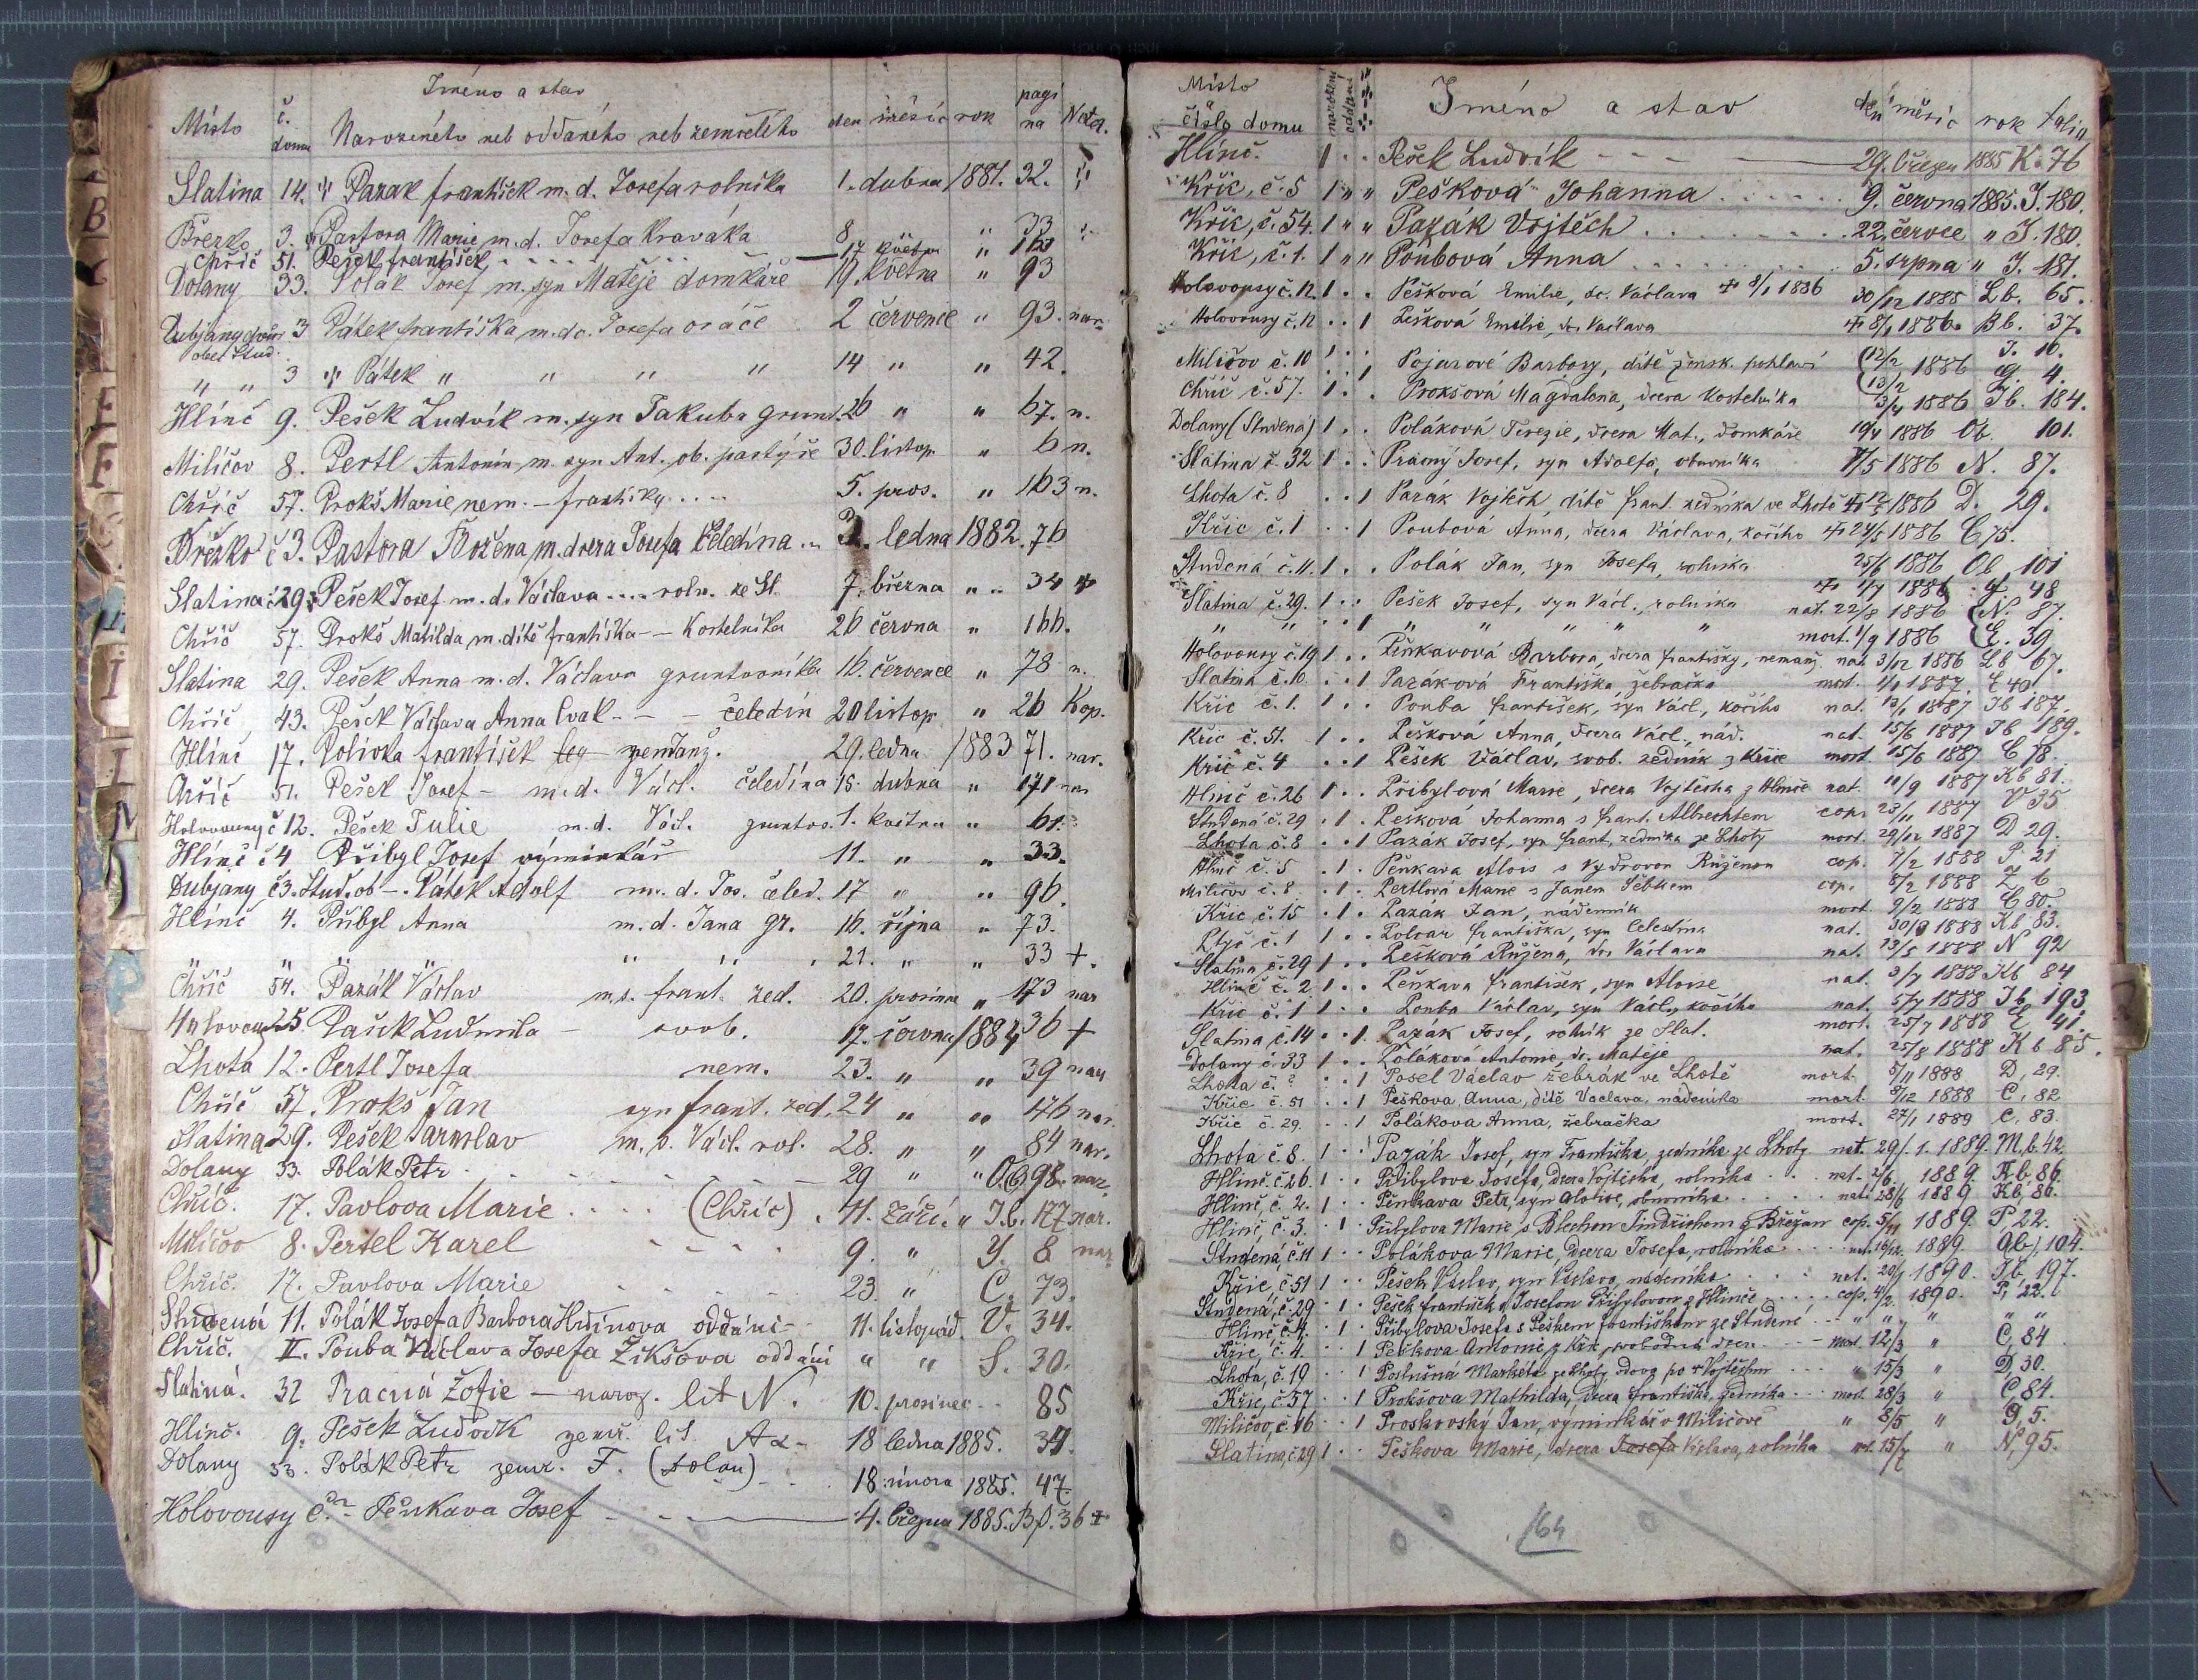 Jméno a stav
Místo č. domu Narozeného neb oddaného neb zemřelého den měsíc rok pagina Nota.
Slatina 14. Pazak frantisek m. d. Josefa rolníka 1. dubna 1881. 32.
Březko 3. Pastora Marie m. d. Josefa Kraváka 8 " " 33
Chříč 51. Pešek frantisek 17 květ " 160
Dolany 33. Polák Josef m. syn Matěje domkáře 19. května " 93
Dubjany dvůr 3 Pátek frantiska m. dc. Josefa oráče 2 července " 93. nar.
obec Stud.
" " 3 Pátek " " " " 14 " " 42.
Hlínč 9. Pešek Ludvík m. syn Jakuba grunt. 26 " " 67. n.
Miličov 8. Pertl Antonín m. syn Ant. ob. pastýře 30. listop. " 6 n.
Chříč 57. Prokš Marie nem. - frantisky.... 5. pros. " 163 n.
Břežko č 3. Pastora Božena m. dcera Josefa čeledína .. 3. ledna 1882. 76
Slatina č 29. Pešek Josef m. d. Václava .... roln. ze Sl. 7. března " .. 34 +
Chříč 57. Prokš Matilda m. dítě frantiska - - Kostelníka 26 června " 166.
Slatina 29. Pešek Anna m. d. Václava gruntovníka 16. července " 78 n.
Chříč 43. Pešek Václava Anna Cvak - - - čeledín 20 listop " 26 Kop.
Hlínč 17. Polívka frantisek leg nemanž. 29. ledna 1883 71. nar.
Chříč 51. Pešek Josef - m. d. Václ. čeledína 15. dubna " 171 nar
Holovousy č 12. Pešek Julie m. d. Václ. gruntov. 1. Května " 61.
Hlínč č 4 Přibyl Josef výminkář 11. " " 33.
Dubjany č 3. Stud. ob -. Pátek Adolf m. d. Jos. čeled. 17 " " 96.
Hlínč 4. Přibyl Anna m. d. Jana gr. 16. října " 73.
" " " " " 21. " " 33 +.
Chříč 54. Pazák Václav m. s. frant. zed. 20. prosince " 173 nar
Holovousy 25. Pašek Ludmila - svob. 17. června 1884 36 +
Lhota 12. Pertl Josefa nem. 23. " " 39 nar
Chříč 57. Prokš Jan syn frant. zed. 24 " " 176 nar.
Slatina 29. Pešek Jaroslav m. s. Václ. rol. 28. " " 84 nar.
Dolany 33. Polák Petr 29 " " Ob 98. nar.
Chříč. 17. Pavlova Marie .... (Chříč) . 11. Září. " J.b. 177 nar.
Miličov 8. Pertel Karel 9. " Y. 8 nar
Chříč. 17. Pavlova Marie 23. " C. 73.
Studená 11. Polák Josef a Barbora Hvínova oddáni - 11. listopád. V. 34.
Chříč. II. Pouba Václav a Josefa Žikšova oddáni " " S. 30.
Slatiná. 32 Pracná Žofie - naroz. lit N. 10. prosinec - - 85
Hlinč. 9. Pešek Ludvík zemř. lit. 18 ledna 1885. 34.
Dolany 33. Polák Petr zemř. F. (dolan) 18. února 1885. 47.
Holovousy č. - Peňkava Josef 4. března 1885. 36
Místo číslo domu narození oddaní Jméno a stav den měsíc rok folia
Hlínč. 1 . . Pešek Ludvík - - - 29. březen 1885 K. 76
Křič, č. 5 1 " " Pešková Johanna ..... 9. června 1885. J. 180.
Křič, č. 54. 1 " " Pazák Vojtěch ....... 22. červce " J. 180.
Křič, č. 1. 1 " " Poubová Anna ........ 5. srpna " J. 181.
Holovousy č. 12. 1 . . Pešková Emilie, dc. Václava + 8/1 1886 30/12 1885 Lb. 65.
Holovousy č. 12 . . 1 Pešková Emilie, dc. Václava + 8/1 1886. Bb. 37.
Miličov č. 10 1 . . Pojarové Barbory, dítě žensk. pohlaví (12/2 1886 J. 10.
. . 1 (13/2 G. 4.
Chříč č. 57. 1 . . Prokšová Magdalena, dcera Kostelníka 3/4 1886 Jb. 184.
Dolany (Studená) 1 . . Poláková Terezie, dcera Mat., domkáře 19/4 1886 Ob. 101.
Slatina č. 32 1 . . Pracný Josef, syn Adolfa, obuvníka 7/5 1886 N. 87.
Lhota č. 8 . . 1 Pazák Vojtěch, dítě frant. zedníka ve Lhotě 1886 D. 29.
Křic č. 1 . . 1 Poubová Anna, dcera Václava, kočího + 24/5 1886 C 75.
Studená č. 11. 1 . . Polák Jan, syn Josefa, rolníka 25/6 1886 Ob 101
+ 1/7 1886 F. 48
Slatina č. 29. 1 . . Pešek Josef, syn Václ., rolníka nat. 22/8 1886 N. 87.
" " . . 1 " " " " " mort. 1/9 1886 E. 39
Holovousy č. 19 1 . . Peňkavová Barbora, dcera frantisky, nemanž. nat. 3/12 1886 Lb 67.
Slatina č. 10. . . 1 Pazáková Františka, žebračka mort. 4/1 1887. E 40
Křic č. 1. 1 . . Pouba frantisek, syn Václ., kočího nat. 1887 Jb 187.
Křic č. 51. 1 . . Pešková Anna, dcera Václ., nád. nat. 15/6 1887 Jb 189.
Křič č. 4 . . 1 Pešek Václav, svob. zedník z Křice mort. 15/6 1887 C 78.
Hlinč č. 26 1 . . Přibylová Marie, dcera Vojtěcha z Hlinče nat. 10/9 1887 Kb 81.
Studená č. 29 . 1 . Pešková Johanna s frant. Albrechtem cop. 23/11 1887 V 35
Lhota č. 8 . . 1 Pazák Josef, syn frant. zedníka ze Lhoty mort. 29/12 1887 D 29.
Hlinč č. 5 . 1 . Peňkava Alois s Vydrovou Růženou cop. 7/2 1888 P 21
Miličov č. 8 . 1 . Pertlová Marie s Janem Šebkem cop. 8/2 1888 Z 6
Křic č. 15 . . 1 Pazák Jan, nádenník mort. 9/2 1888 C 80.
č. 1 1 . . Polcar frantiska, syn Celestina nat. 1888 Kb 83.
Slatina č. 29 1 . . Pešková Růžena, dc. Václava nat. 13/5 1888 N 92
Hlinč č. 2 1 . . Peňkava frantisek, syn Aloise nat. 3/7 1888 Kb 84
Křic č. 1 1 . . Pouba Václav, syn Václ., kočího nat. 5/7 1888 Jb 193
Slatina č. 14 . . 1 Pazák Josef, rolník ze Slat. mort. 25/7 1888 E 41.
Dolany č. 33 1 . . Poláková Antonie, dc. Matěje nat. 25/8 1888 Kb 85.
Lhota č. ? . . 1 Posel Václav žebrák ve Lhotě mort. 5/11 1888 D, 29.
Křic č. 51 . . 1 Peškova Anna, dítě Václava, nádeníka mort. 8/12 1888 C, 82
Křic č. 29. . . 1 Polákova Anna, žebračka mort. 27/1 1889 C. 83.
Lhota č. 8. 1 . . Pazák Josef, syn Františka, zedníka ze Lhoty nat. 29/. 1. 1889. M, b. 42.
Hlinč č. 26. 1 . . Přibylova Josefa, dcera Vojtěcha, rolníka . . . nat. 2/6. 1889. Kb. 86.
Hlinč, č. 2. 1 . . Pěnkava Petr, syn Aloise, obuvníka . . . . nat. 28/6 1889 Kb, 86.
Hlinč, č. 3. . 1 . Přibylova Marie, s Blechou Jindřichem z Břežan cop. 5/11 1889. P, 22.
Studená, č. 11 1 . . Polákova Marie, dcera Josefa, rolníka . . . nat. 16/12. 1889. Ob, 104.
Křic, č. 51 1 . . Pešek Václav, syn Václava, nádeníka . . . nat. 20/1 1890. Jb, 197.
Studená, č. 29 . 1 . Pešek frantisek s Josefou Přibylovou z Hlinče . . . . cop. 4/2. 1890. P, 22.
Hlinč č. 4. . 1 . Přibylova Josefa s Peškem frantiskem ze Studené . . . " " " " "
Křic, č. 4. . . 1 Peškova Antonie z Křic, svobodná dcera . . . mort. 12/3 " C, 84
Lhota, č. 19 . . 1 Poslušná Markéta ze Lhoty, vdova po + Vojtěchu . . . " 15/3 " D, 30.
Křic, č. 57 . . 1 Prokšova Mathilda, dcera františka, zedníka . . . mort. 28/3 " C, 84.
Miličov, č. 16 . . 1 Proskovský Jan, výminkář v Miličově " 8/5 " G, 5.
Slatina, č. 29 1 . . Peškova Marie, dcera Josefa Václava, rolníka nat. 15/7 " N, 95.
164